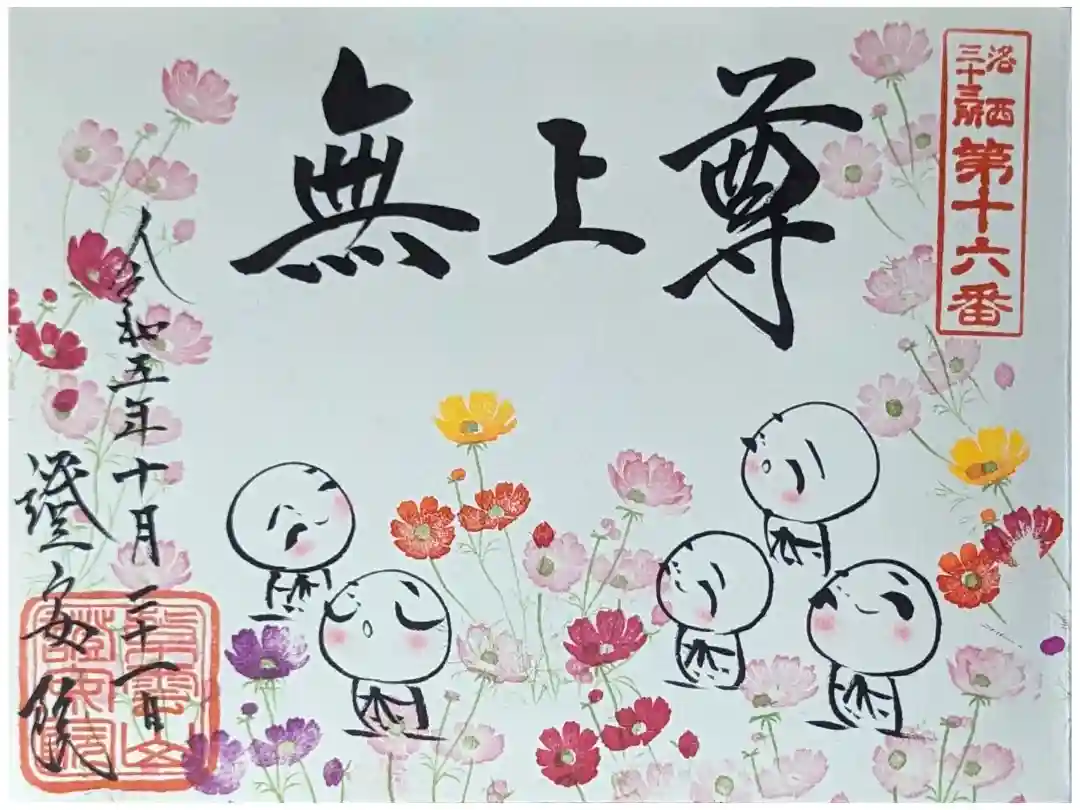 無上尊
洛西
三十三所
第十六番
令和五年十月二十一日
證安院